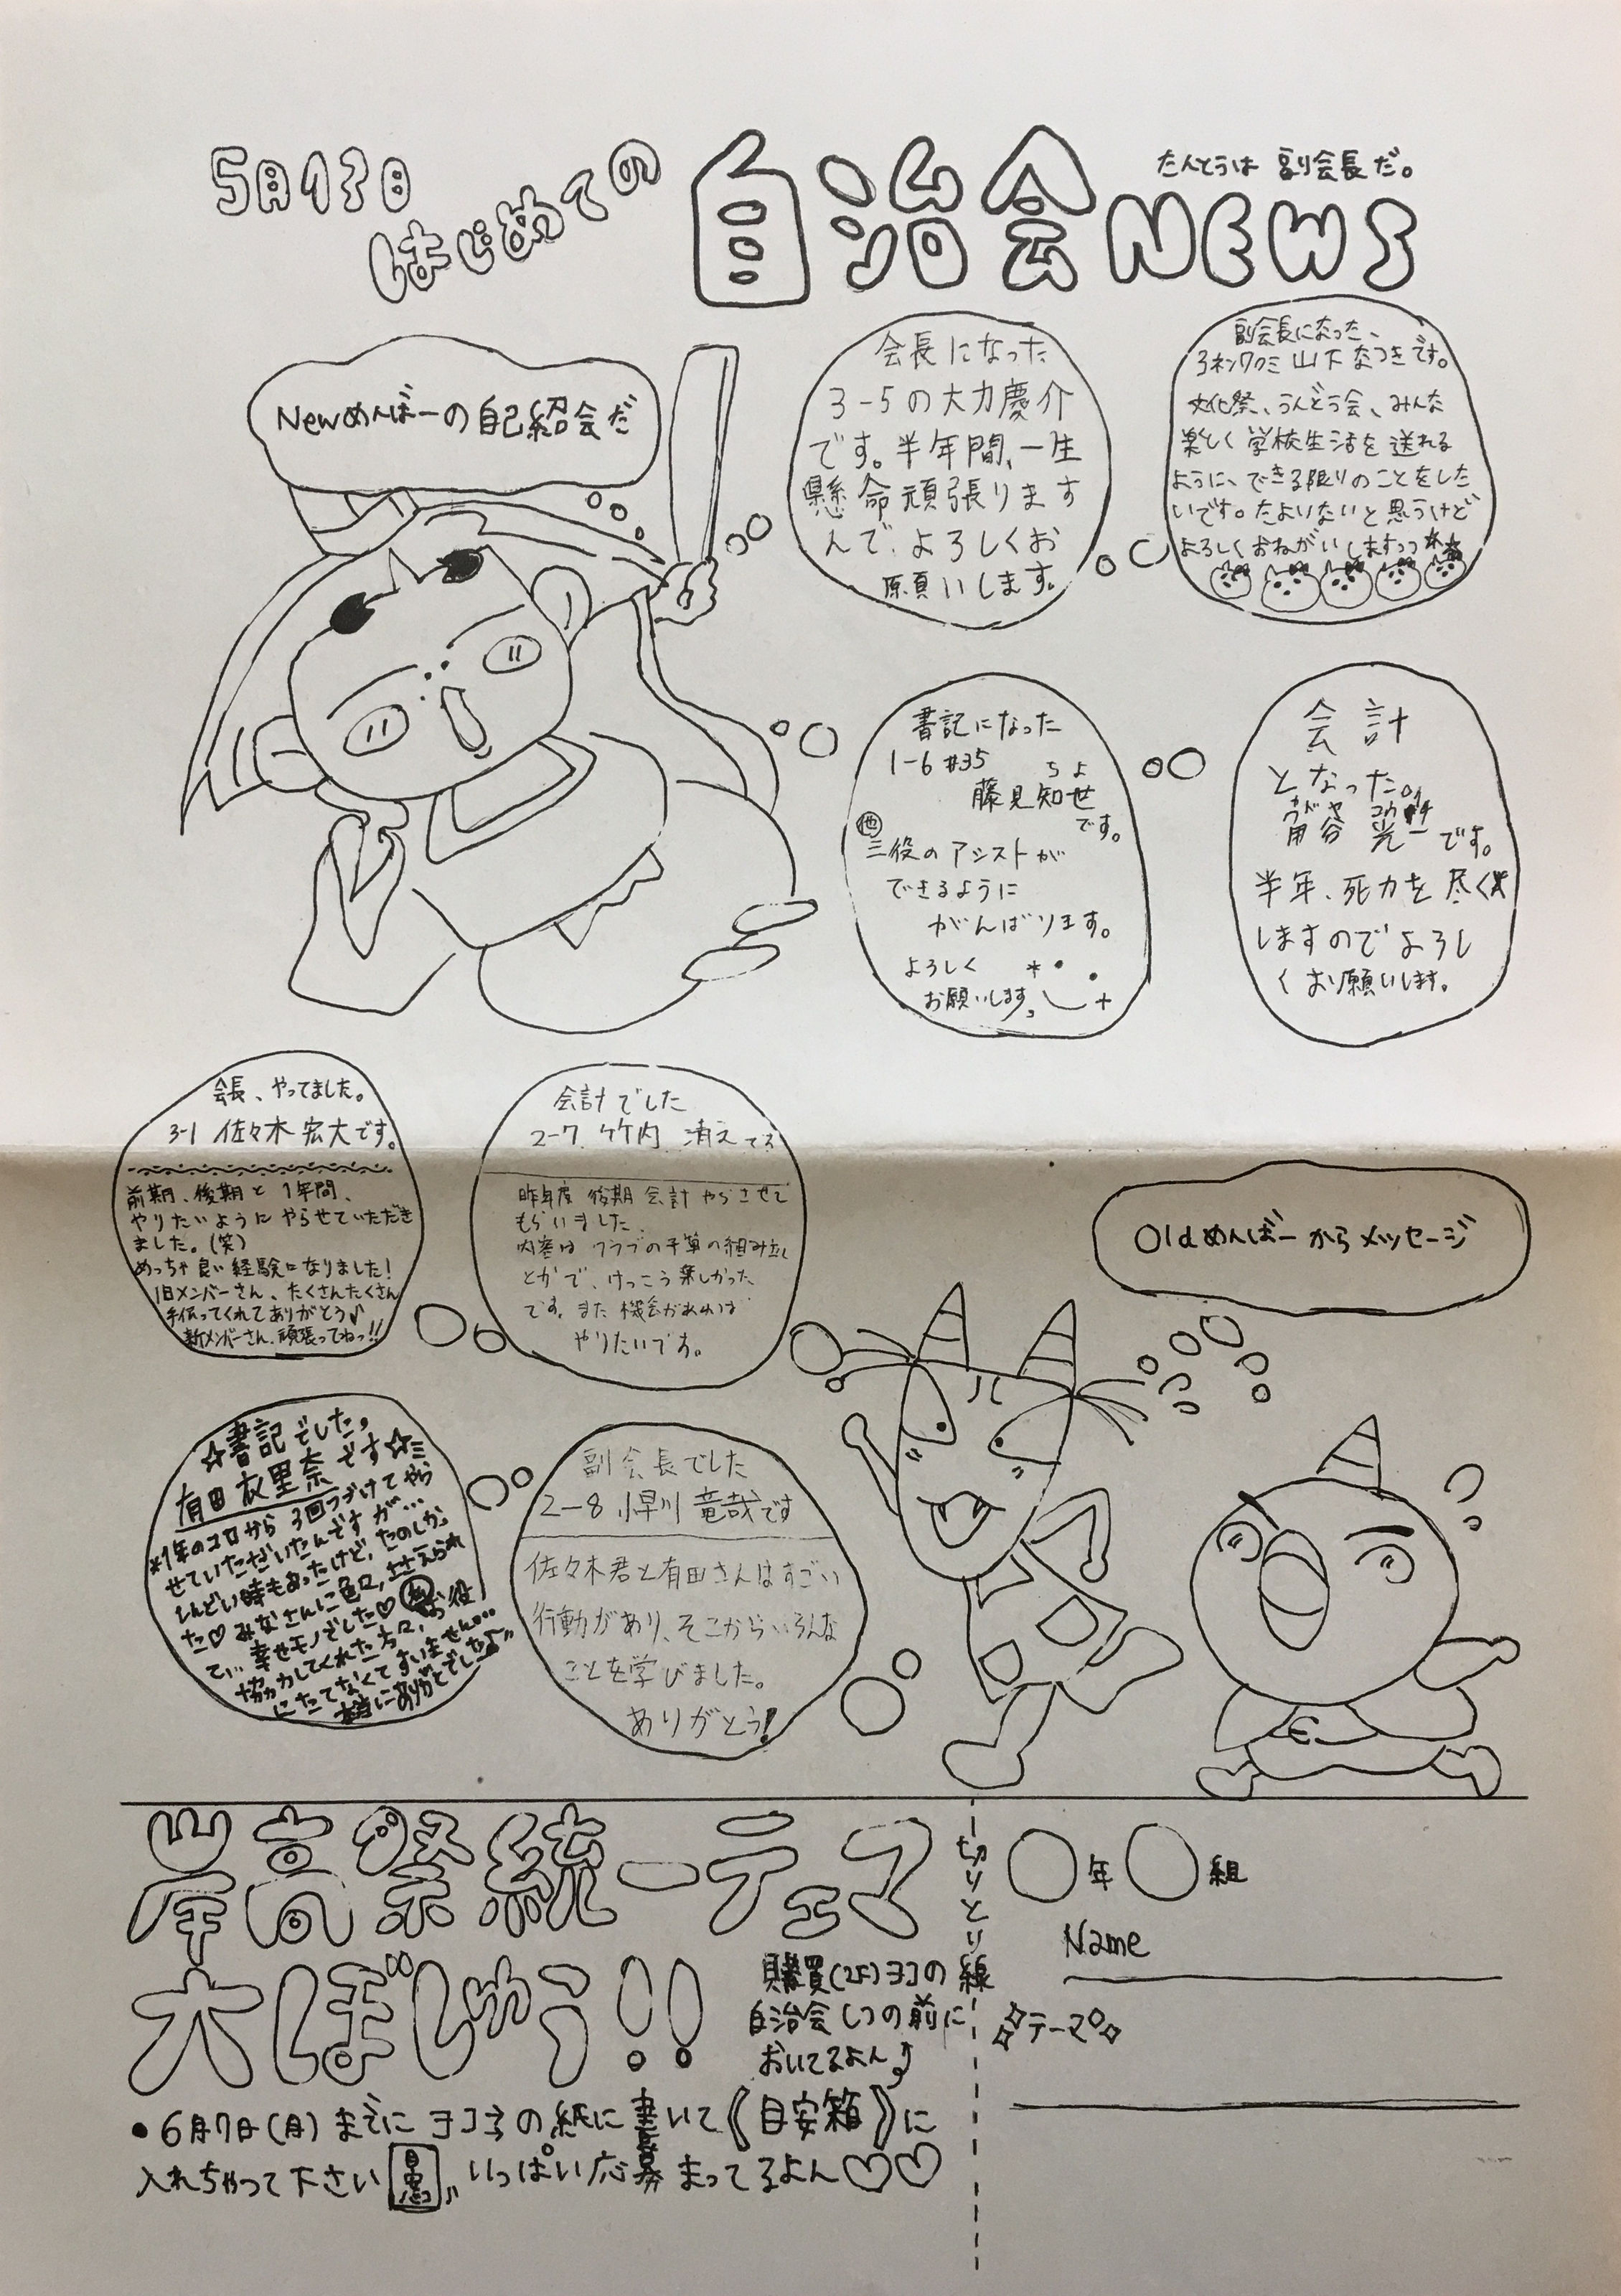 5月13日
はじめての
自治会NEWS
たんとうは 副会長だ。
Newめんばーの自己紹会だ
会長になった
3-5の大力慶介
です。半年間、一生
懸命頑張ります
んで、よろしくお
願いします。
副会長になった、
3ネン7クミ 山下なつきです。
文化祭、うんどう会、みんな
楽しく学校生活を送れる
ように、できる限りのことをした
いです。たよいないと思うけど
よろしくおねがいしますっっ
書記になった
1-6 #35
ちよ
藤見知世
です。
他
三役のアシストが
できるように
がんばります。
よろしく
お願いします。
会計
となった。
角谷 光一です。
半年、死力を尽く
しますのでよろし
くお願いします。
会長、やってました。
3-1 佐々木宏大です。
前期、後期と1年間、
やりたいようにやらせていただき
ました。(笑)
めっちゃ良い経験になりました!
旧メンバーさん、たくさんたくさん
手伝ってくれてありがとう♪
新メンバーさん、頑張ってねっ!!
会計でした
2-7 竹内
昨年度 後期 会計 やらさせて
もらいました。
内容は クラブの予算の組み立て
とかで、けっこう楽しかった
です。また機会があれば
やりたいです。
Oldめんばーからメッセージ
☆書記でした。
有田衣里奈です☆
*1年のコロから3回つづけてやら
せていただいたんですが…
しんどい時もあったけど、たのしか
た♡みなさんに色々、ささえられ
て… 幸せモノでした♡
協力してくれた方々、お役
にたてなくてすいません…
本当にありがとでした♪
副会長でした
2-8 小早川 竜哉です
佐々木君と有田さんはすごい
行動があり、そこからいろんな
ことを学びました。
ありがとう!
岸高祭統一テェマ
大ぼしゅう!!
購買(2F)ヨコの
自治会しつの前に
おいてるよん
•6月7日(月)までにヨコォの紙に書いて《目安箱》に
入れちゃって下さい いっぱい応募まってるよん♡♡
切りとり線
○年○組
Name
テーマ